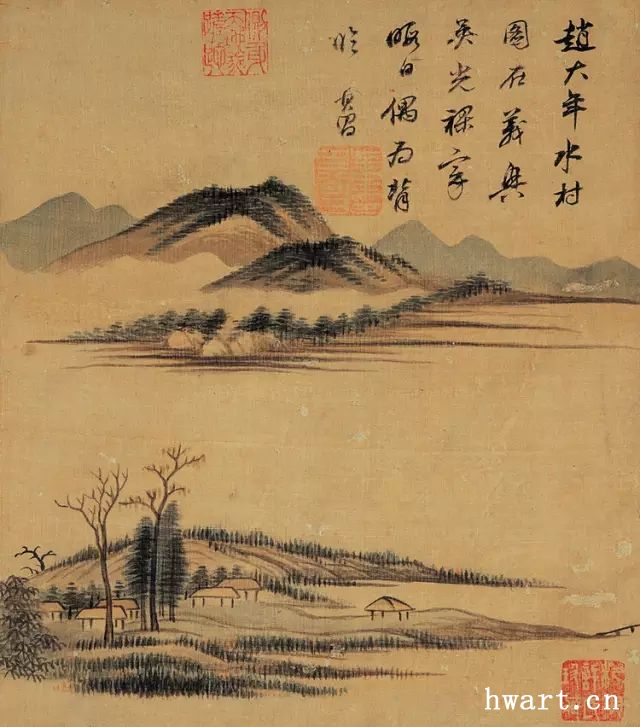 趙大年水村
圖在義興
吳光祿家
暇日偶為背
臨 其昌
hwart.cn